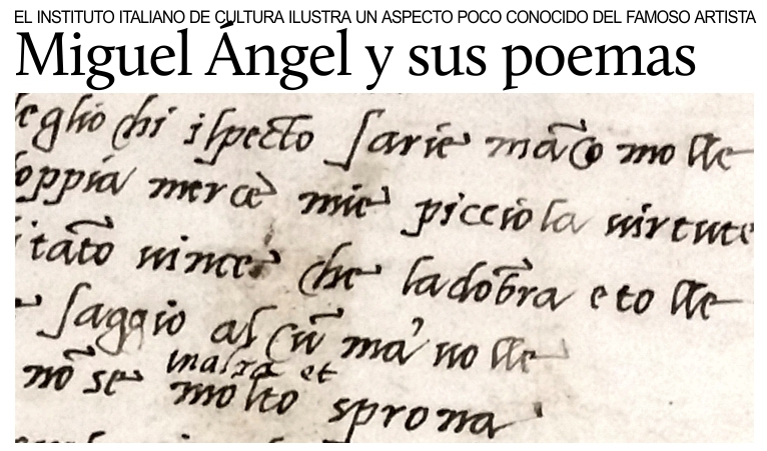 EL INSTITUTO ITALIANO DE CULTURA ILUSTRA UN ASPECTO POCO CONOCIDO DEL FAMOSO ARTISTA
Miguel Ángel y sus poemas
eglio chi ispecto sarie mãco molle
oppia mercè mie picciola uirtute
itato uince che ladõbra e tolle
saggio alcũ ma uolle
inalza et
nõ se molto sprona